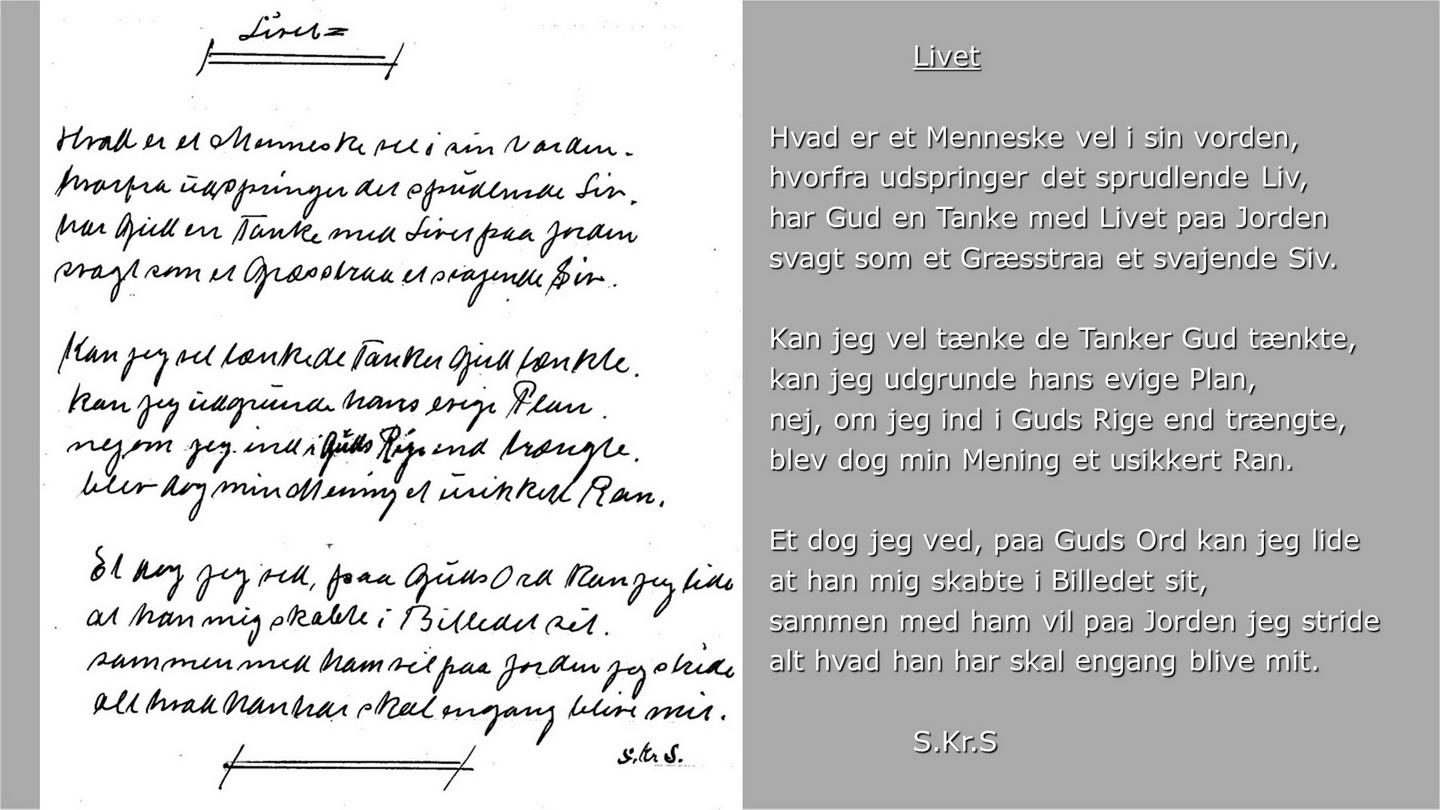 Livet =
Hvad er et Menneske vel i sin Vorden.
hvorfra udspringer det sprudlende Liv.
har Gud en Tanke med Livet paa Jorden
svagt som et Græsstraa et svajende Siv.
Kan jeg vel tænke de Tanker Gud tænkte.
kan jeg udgrunde hans evige Plan.
nej om jeg ind i Guds Rige end trængte.
blev dog min Mening et usikkert Ran.
Et dog jeg ved, paa Guds Ord kan jeg lide
at han mig skabte i Billedet sit.
sammen med ham vil paa Jorden jeg stride
alt hvad han har skal engang blive mit.
S.Kr S.
Livet
Hvad er et Menneske vel i sin vorden,
hvorfra udspringer det sprudlende Liv,
har Gud en Tanke med Livet paa Jorden
svagt som et Græsstraa et svajende Siv.
Kan jeg vel tænke de Tanker Gud tænkte,
kan jeg udgrunde hans evige Plan,
nej, om jeg ind i Guds Rige end trængte,
blev dog min Mening et usikkert Ran.
Et dog jeg ved, paa Guds Ord kan jeg lide
at han mig skabte i Billedet sit,
sammen med ham vil paa Jorden jeg stride
alt hvad han har skal engang blive mit.
S.Kr.S